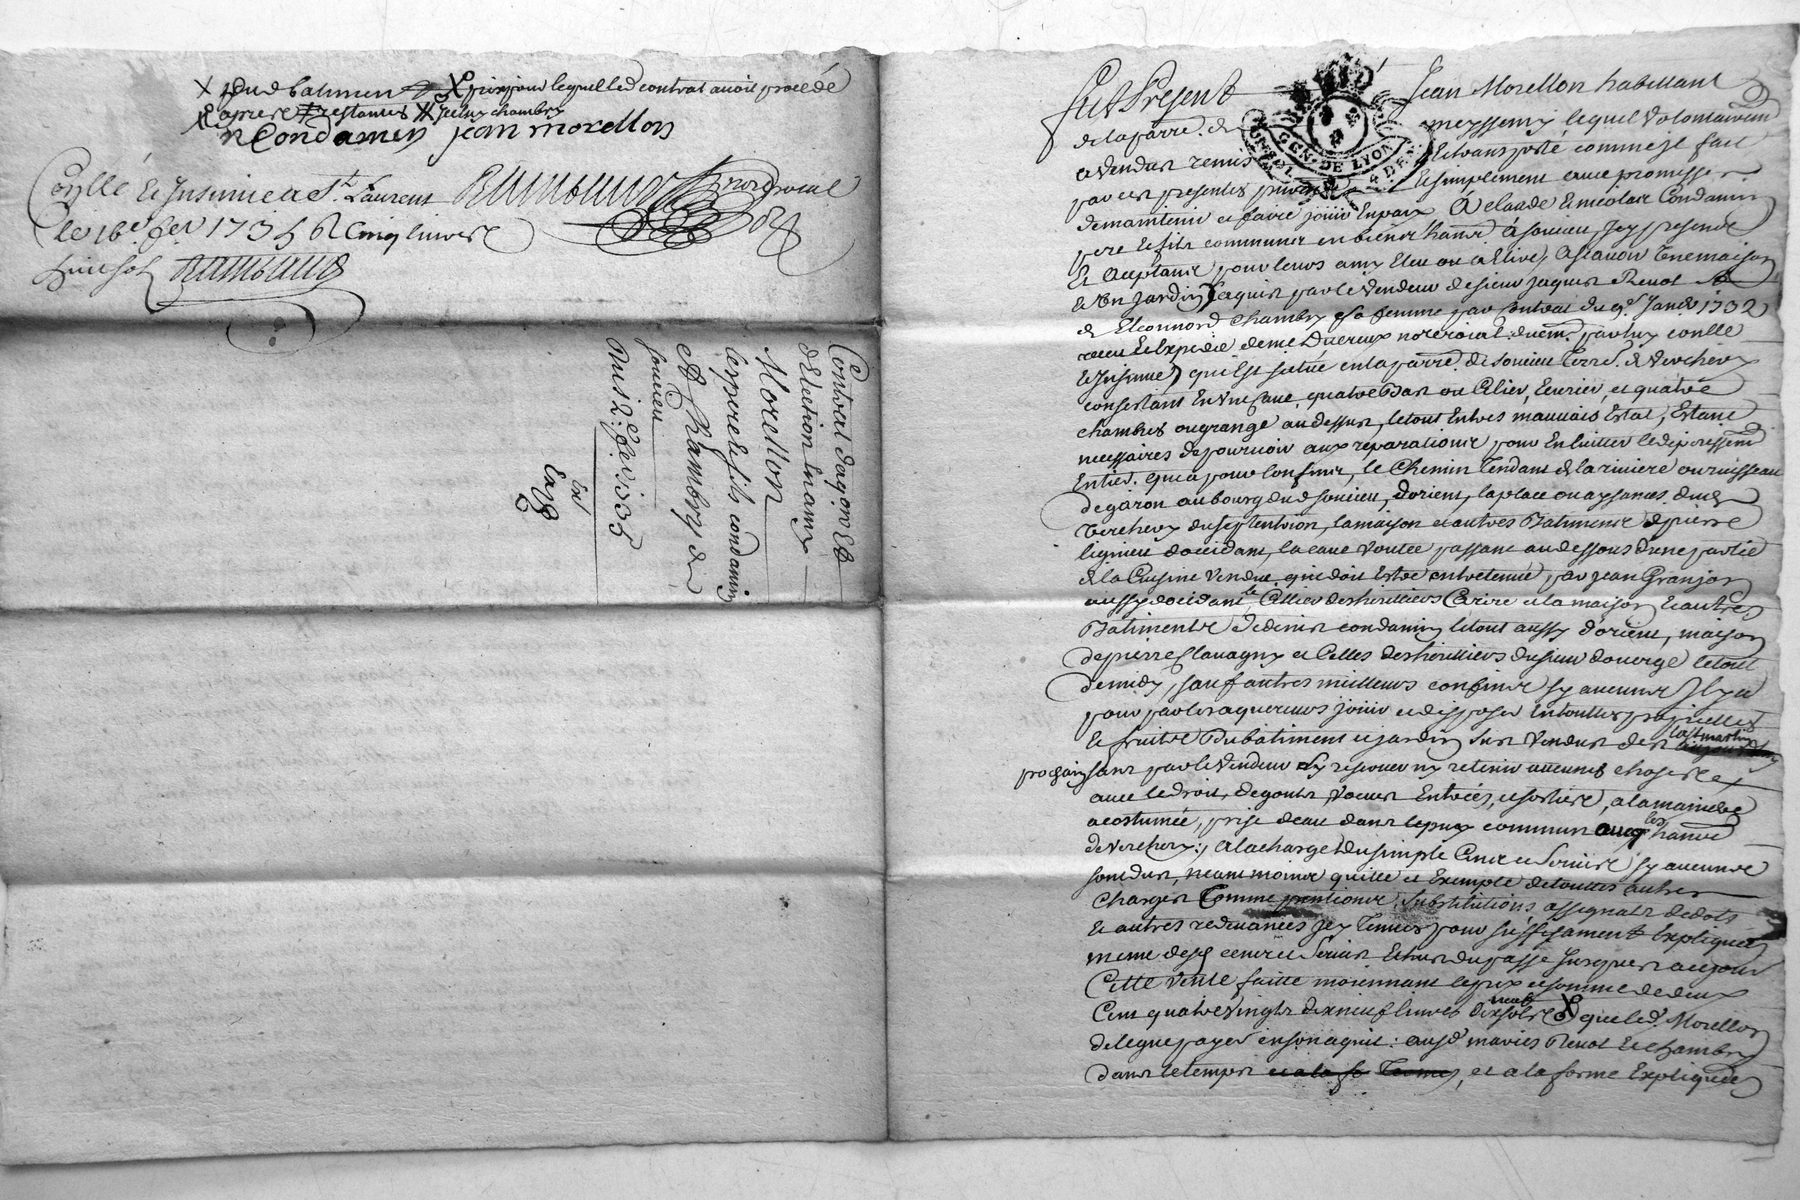 x du d batimen x prix pour lequel led contrat avoit procédé
restantes chambry
Condamin jean morellon
Conllé et Insinué a St Laurent Rambaud
le 16e fer 1735 R Cinq livres
huit sols Rambaud
Contrat daqon et
délection damy
Morellon
les pere et fils condamin
et Chambry de
soucieu
Du 12e fer 1735
Ex
Exp
Fut Present Jean Morellon habittant
de la parre de messemy lequel volontairemt
a vendu remis et transporté comme il fait
par ces presentes purem et simplement avec promesse
de maintenir et faire jouir en paix A claude et nicolas Condamin
pere et fils communs en biens hants a soucieu, Icy presents
et acceptants pour leurs amy eleu ou a Elire, Ascavoir Une maison
et Un jardin, aquis par le vendeur de sieur jaques Renot
et Eleonnord chambry sa femme par contrat du 9e Janer 1732
receu et Expedié de me Duereux note roial duem. par luy conllé
et Insinué, qui Est située en la parre de soucieu Terre de Verchery
consistant En Une cave, quatre Bas ou Celier, Ecurier, et quatre
chambres ou grange au dessus, le tout En tres mauvais Estat, Estant
necessaires de pourvoir aux reparations pour En Eviter le deperissemt
Entier. qui a pour confins, le Chemin Tendant de la riviere ou ruisseau
de garon au bourg dud soucieu, dorient, la place ou aysances dud
Verchery du septentrion, la maison et autres Batiments de pierre
lignieu doccidant, la cave voutée passant au dessous dune partie
de la Cuisine Vendue qui doit Estre entretenue, par jean Granjon
aussy doccidant le Cellier des herittiers Carire et la maison et autres
Batiments de denis condamin le tout aussy dorient, maison
de pierre flavagny et Celles des herittiers du sieur douerge le tout
de midy, sauf autres meilleurs confins sy aucuns Il y a
pour par les aquereurs jouir et disposer En touttes proprietté
et fruits du batiment et jardin sus vendus des la st martin
prochain sans par le vendeur sy reserver ny retenir aucunes choses
avec le droit, degouts, vues Entrées, et sorties, a la maniere
acostumée, prise deau dans le puy commun aveq les hants
de verchery, A la charge du simple Cens et Servis sy aucuns
sont dus, neant moins quitte et Exempte de touttes autres
charges Comme pentions, substitutions, assignats de dots
et autres redevances Icy Tenues pour suffisament Expliquées
meme desd cens et Servis Echus du passé Jusques a ce jour
Cette vente faitte moiennant le prix et somme de deux
Cent quatre vingts dix neuf livres dix neuf sols que led. Morellon
delegue payer en son aquit: ausd mariés Renot et chambry
dans le temps et a la forme Expliquée
GEN. DE LYON